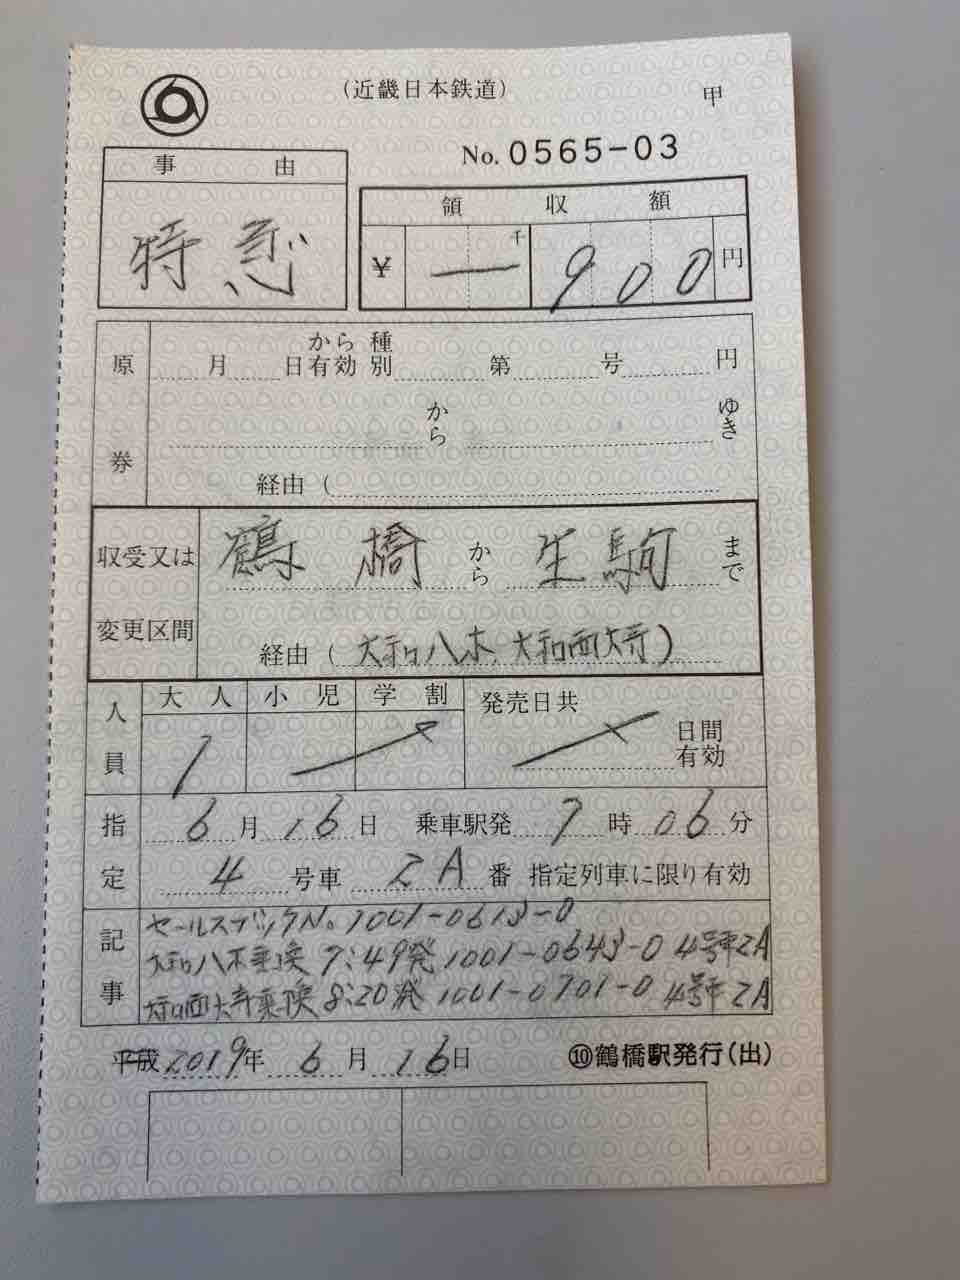 (近畿日本鉄道)
甲
No. 0565-03
事由
特急
領収額
¥ 千 900 円
原券
月 日から有効 種別 第 号 円
から ゆき
経由 (
収受又は変更区間
鶴橋 から 生駒 まで
経由 (大和八木、大和西大寺)
人員
大人 小児 学割 発売日共
1 日間有効
指定
6月16日 乗車駅発 7時06分
4号車 2A番 指定列車に限り有効
記事
1001-0613-0
大和八木乗換 7:49発 1001-0643-0 4号車2A
大和西大寺乗換 8:20発 1001-0701-0 4号車2A
平成2019年6月16日 ⑩鶴橋駅発行(出)